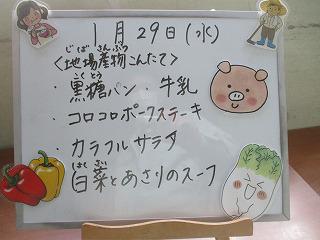 1月29日(水)
じばさんぶつ
〈地場産物こんだて〉
こくとう
・黒糖パン・牛乳
・コロコロポークステーキ
・カラフルサラダ
はくさい
・白菜とあさりのスープ